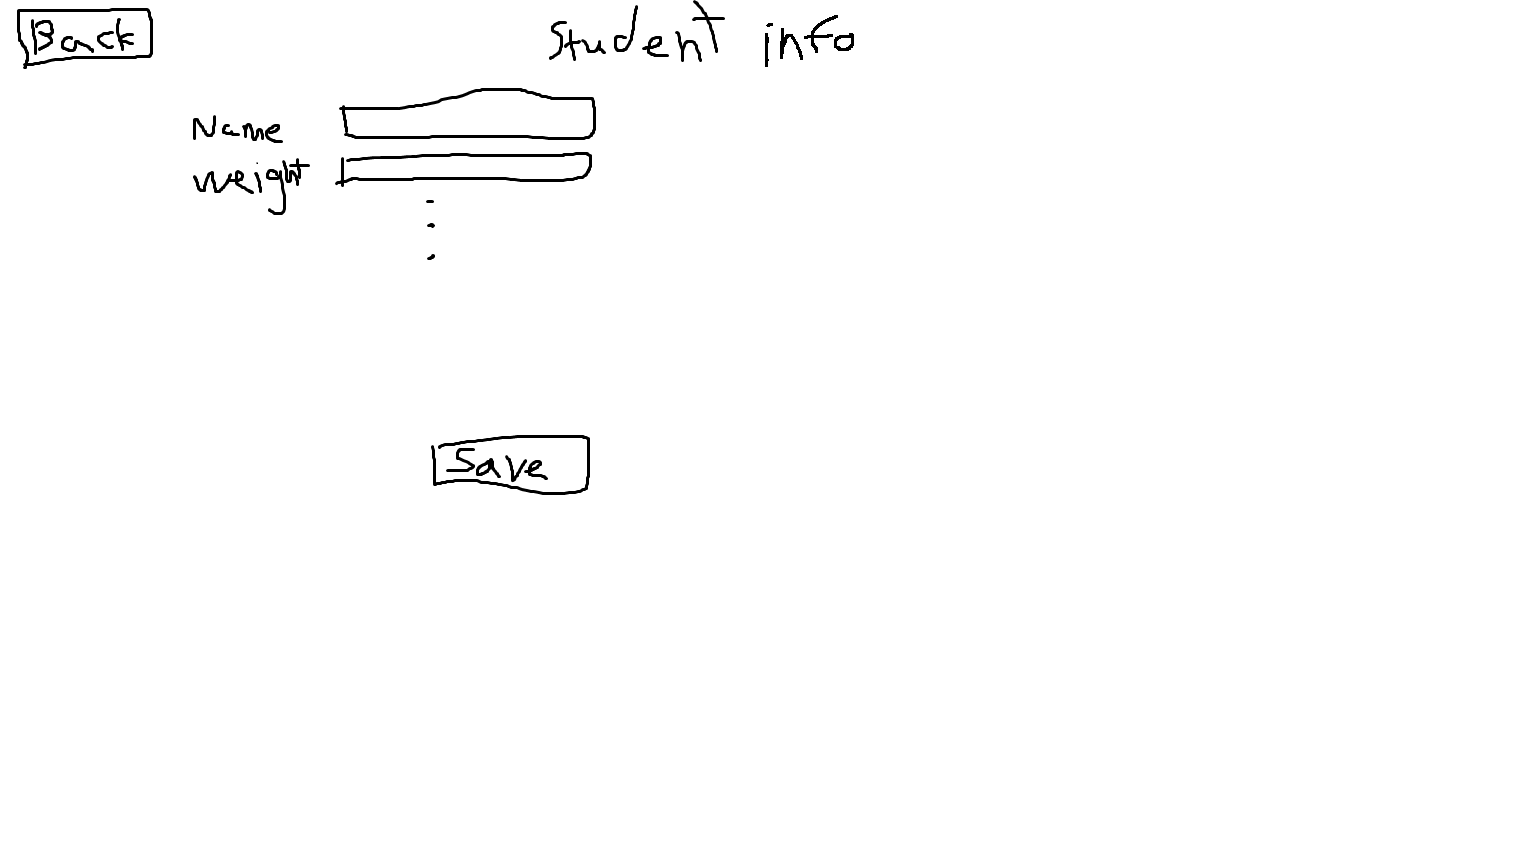 Back
Student info
Name
weight
Save